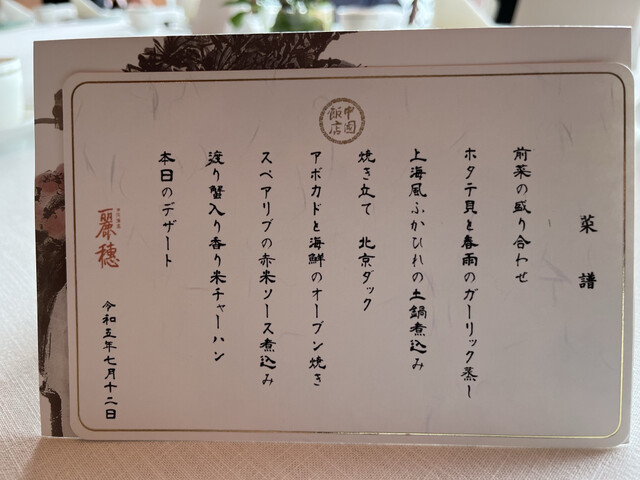 菜譜
前菜の盛り合わせ
ホタテ貝と春雨のガーリック蒸し
上海風ふかひれの土鍋煮込み
焼き立て 北京ダック
アボカドと海鮮のオーブン焼き
スペアリブの赤米ソース煮込み
渡り蟹入り香り米チャーハン
本日のデザート
中国飯店
麗穂
令和五年七月十二日